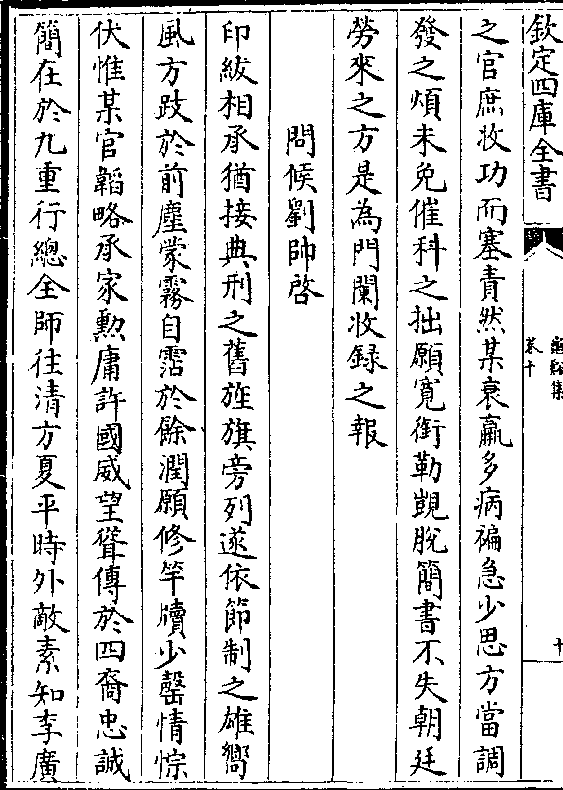 欽定四庫全書
卷十
之官庶收功而塞責然某衰羸多病褊急少思方當調
發之煩未免催科之拙願寛銜勒覬脫簡書不失朝廷
勞來之方是為門闌收録之報
問候劉帥啓
印紱相承猶接典刑之舊旌旗旁列遂依節制之雄嚮
風方跂於前塵蒙霧自霑於餘潤願修竿牘少罄情悰
伏惟某官韜略承家勲庸許國威望聳傳於四裔忠誠
簡在於九重行總全師往清方夏平時外敵素知李廣